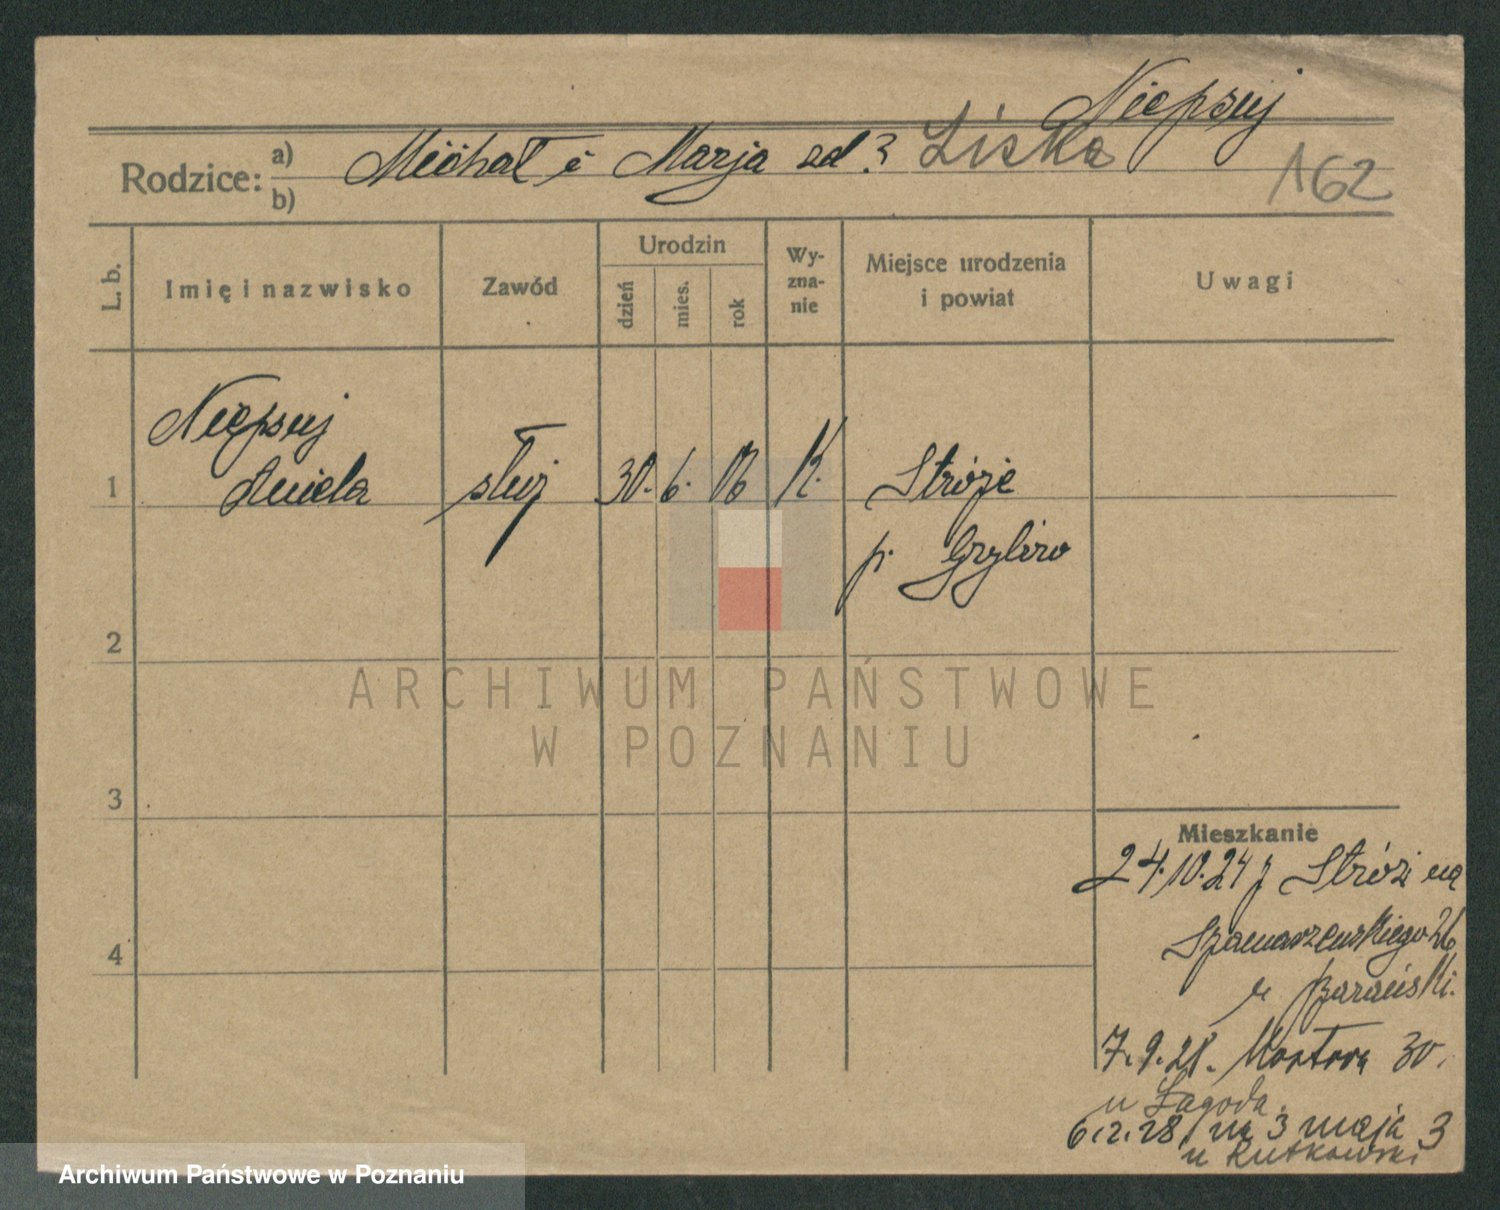 Niepsuj
Rodzice: a) Michał i Marja zd? Liska
b)
162
L. b.
Imię i nazwisko
Zawód
Urodzin
dzień
mies.
rok
Wy-
zna-
nie
Miejsce urodzenia
i powiat
Uwagi
Niepsuj
1 Aniela służ 30. 6. 06 K. Stróże
p. Grybów
2
ARCHIWUM PAŃSTWOWE
W POZNANIU
3
Mieszkanie
24.10.24 z Stróżi na
4
Szamarzewskiego 26
u Barański.
7.9.28. 30.
u Łagoda.
6.12.28 na 3 maja 3
u Rutkowski
Archiwum Państwowe w Poznaniu